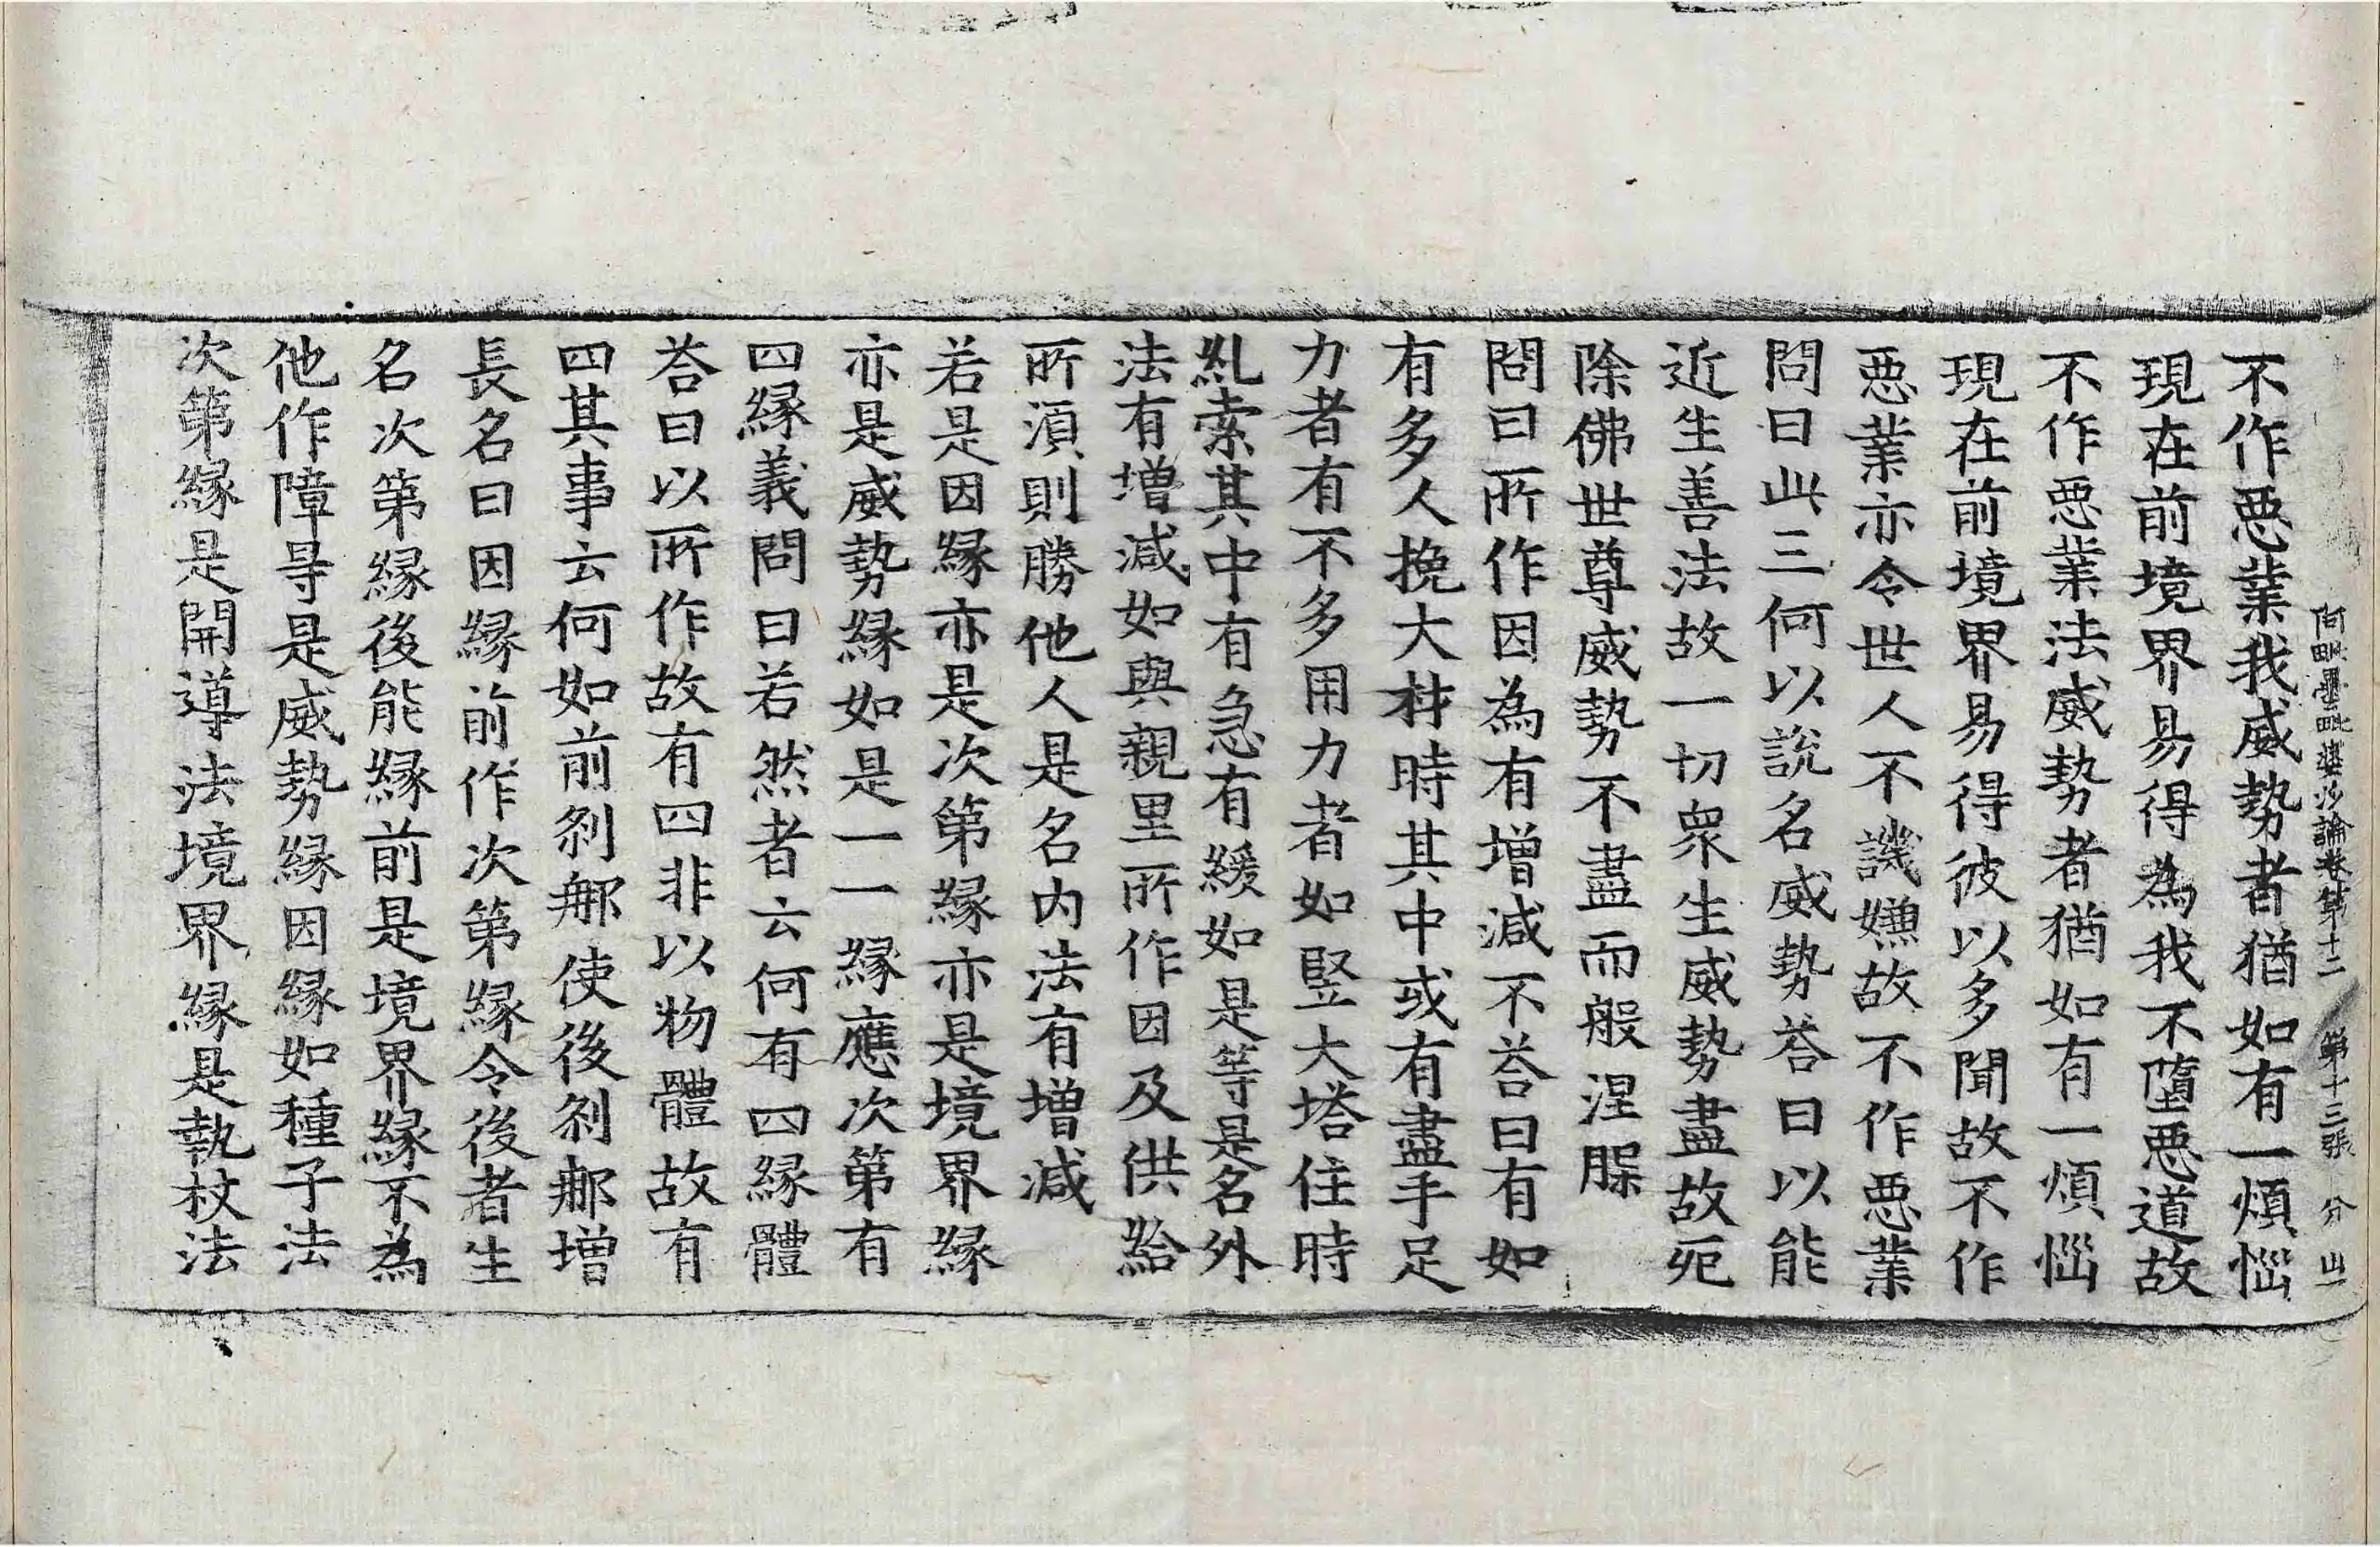 阿毗曇毗婆沙論卷第十二　第十三張　分　出
不作惡業我威勢者猶如有一煩惱
現在前境界易得為我不墮惡道故
不作惡業法威勢者猶如有一煩惱
現在前境界易得彼以多聞故不作
惡業亦令世人不譏嫌故不作惡業
問曰此三何以說名威勢荅曰以能
近生善法故一切衆生威勢盡故死
除佛世尊威勢不盡而般涅槃
問曰所作因為有增減不荅曰有如
有多人挽大材時其中或有盡手足
力者有不多用力者如竪大塔住時
糺索其中有急有緩如是等是名外
法有增減如與親里所作因及供給
所須則勝他人是名內法有增減
若是因緣亦是次第緣亦是境界緣
亦是威勢緣如是一一緣應次第有
四緣義問曰若然者云何有四緣體
荅曰以所作故有四非以物體故有
四其事云何如前剎那使後剎那增
長名曰因緣前作次第緣令後者生
名次第緣後能緣前是境界緣不為
他作障㝵是威勢緣因緣如種子法
次第緣是開導法境界緣是執杖法